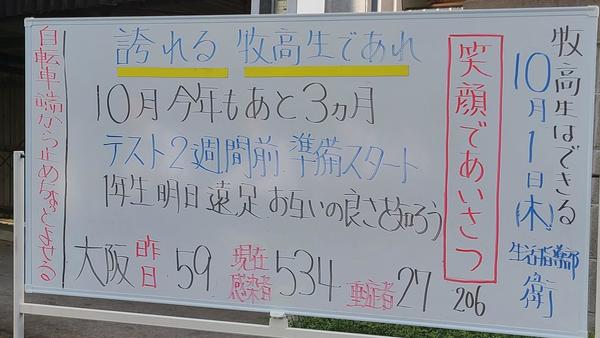 牧高生はできる
10月1日(木)
生活指導部
衛
笑顔であいさつ
206
誇れる 牧高生であれ
10月 今年もあと3ヵ月
テスト2週間前 準備スタート
1年生 明日 遠足 お互いの良さを知ろう
大阪 昨日 59 現在感染者 534 重症者 27
自転車端から止めちゃっとよせる